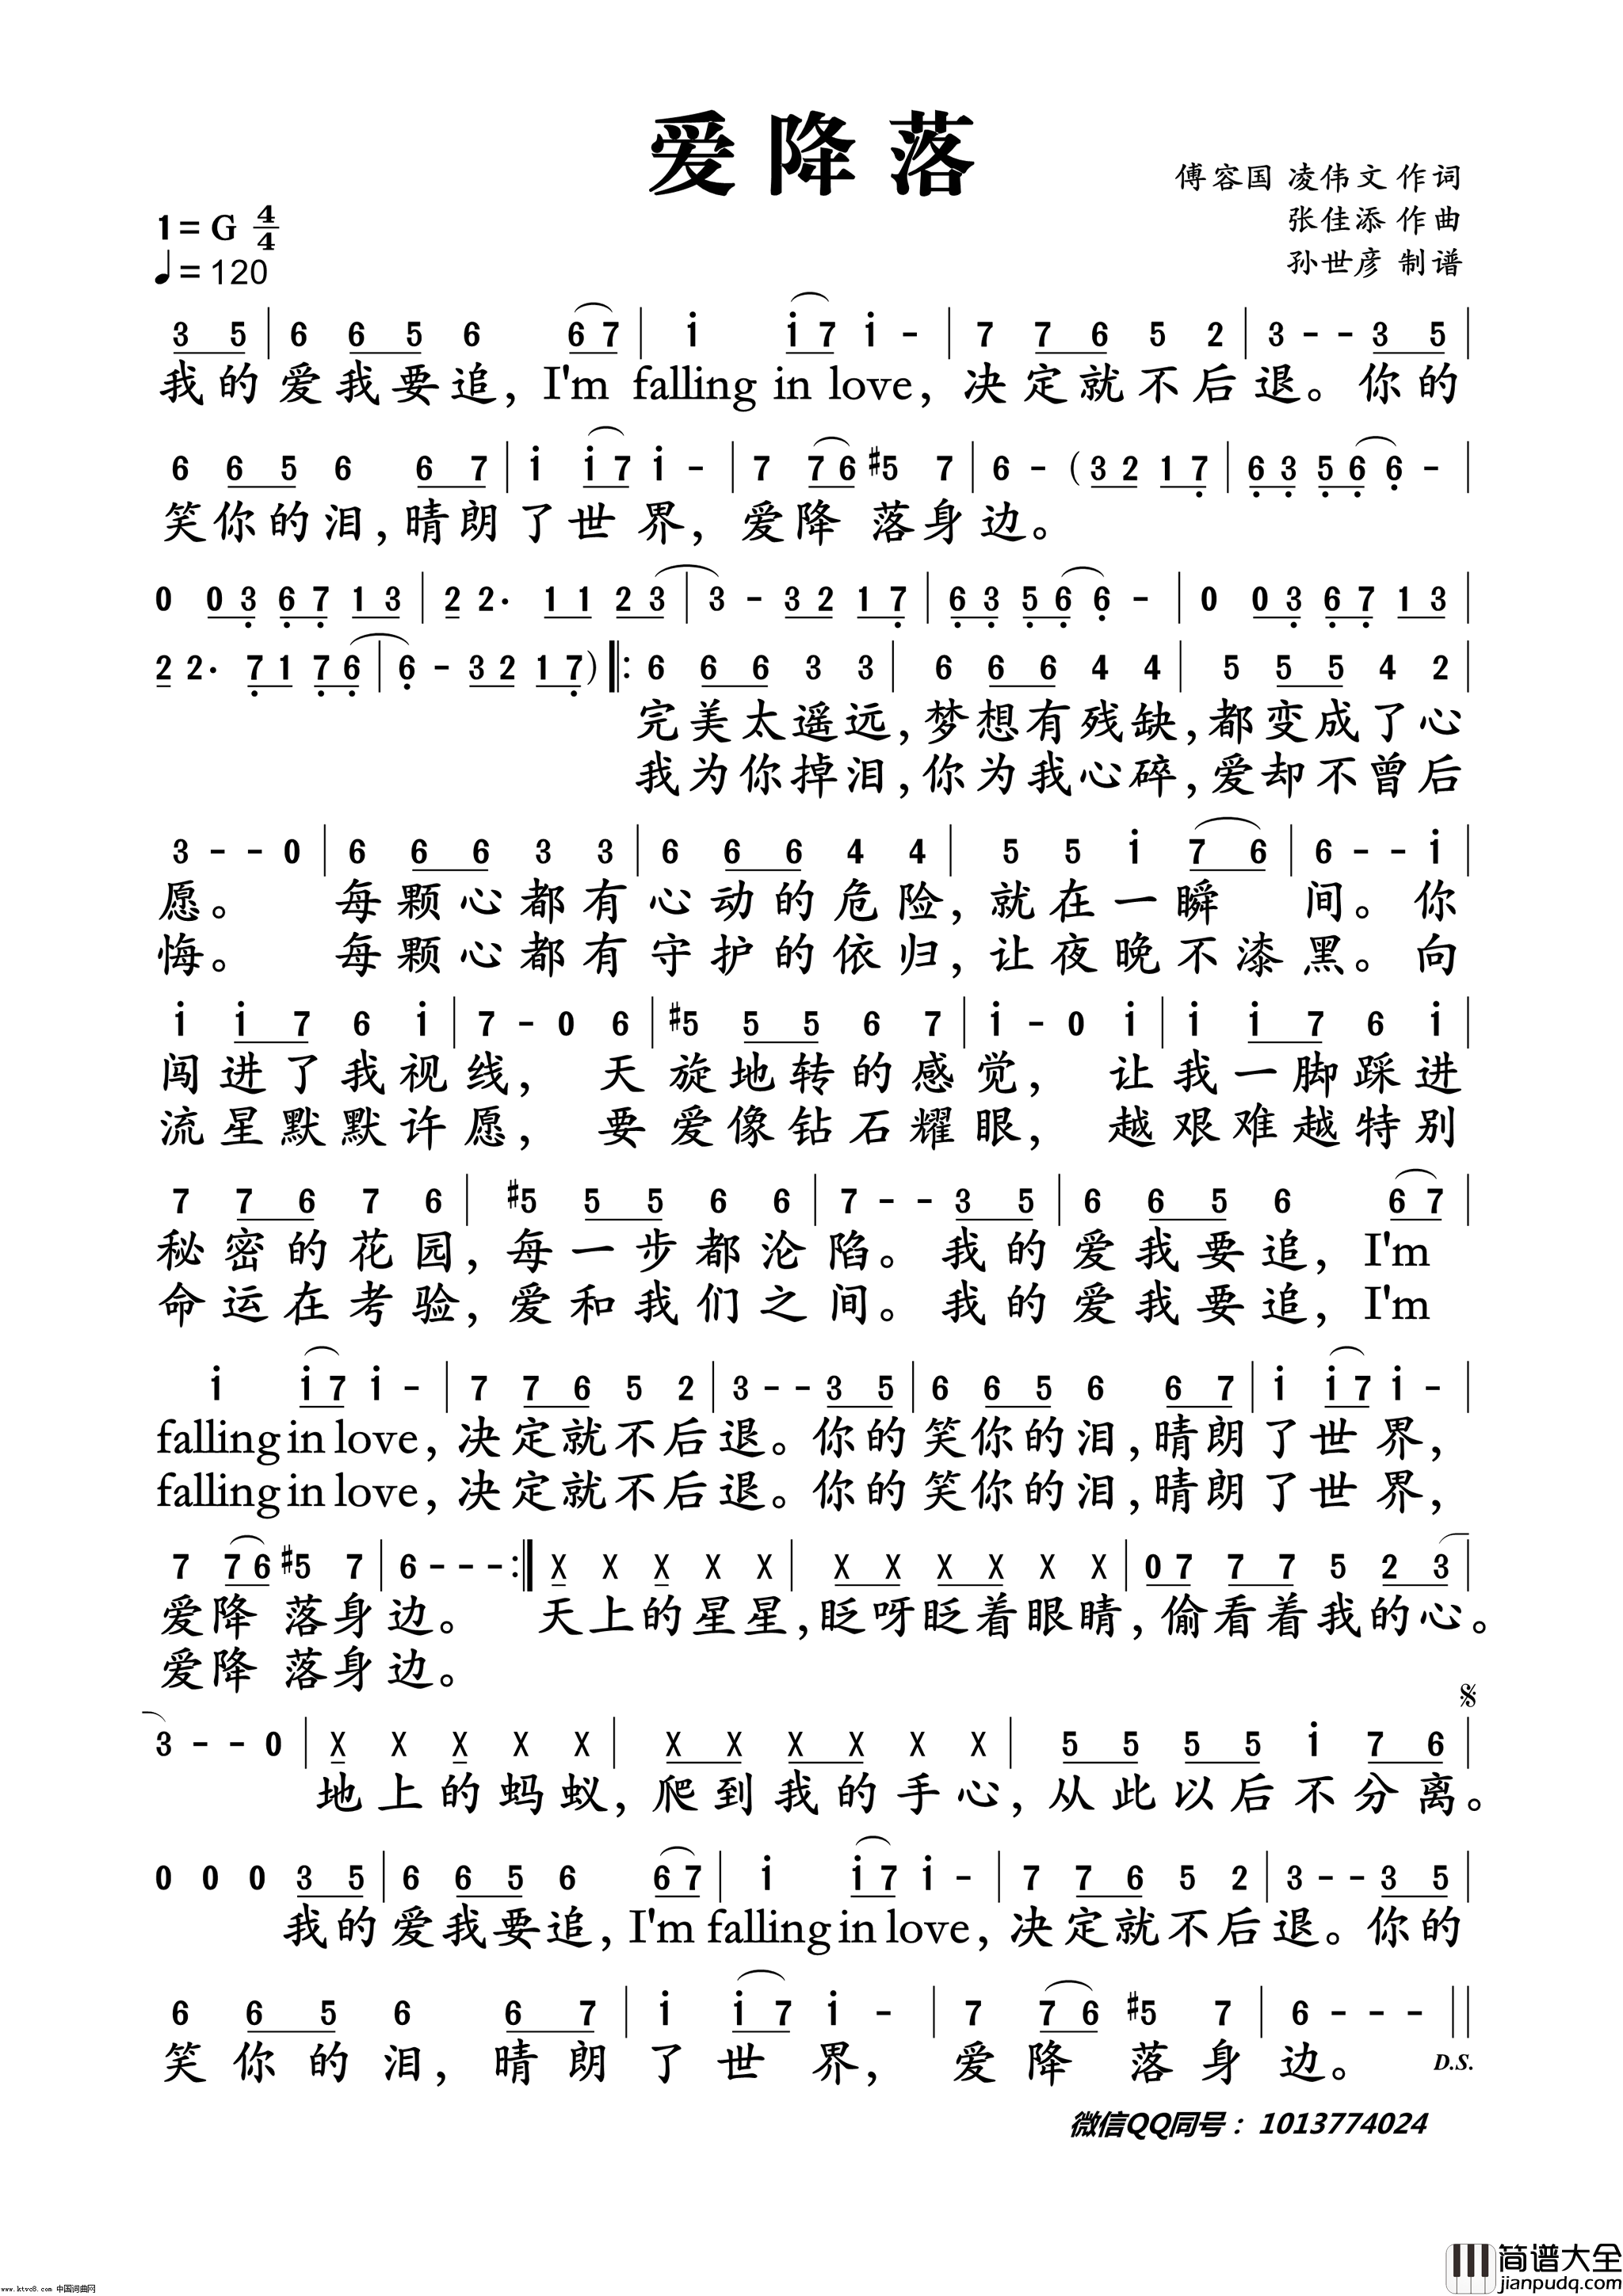 爱降落
傅容国 凌伟文 作词
张佳添 作曲
孙世彦 制谱
1=G 4/4
♩=120
3 5 | 6 6 5 6 6 7 | i i 7 i - | 7 7 6 5 2 | 3 - - 3 5 |
我的爱我要追, I'm falling in love, 决定就不后退。你的
6 6 5 6 6 7 | i i 7 i - | 7 7 6 #5 7 | 6 - (3 2 1 7 | 6 3 5 6 6 - |
笑你的泪,晴朗了世界, 爱降落身边。
0 0 3 6 7 1 3 | 2 2· 1 1 2 3 | 3 - 3 2 1 7 | 6 3 5 6 6 - | 0 0 3 6 7 1 3 |
2 2· 7 1 7 6 | 6 - 3 2 1 7) ‖: 6 6 6 3 3 | 6 6 6 4 4 | 5 5 5 4 2 |
完美太遥远,梦想有残缺,都变成了心
我为你掉泪,你为我心碎,爱却不曾后
3 - - 0 | 6 6 6 3 3 | 6 6 6 4 4 | 5 5 i 7 6 | 6 - - i |
愿。 每颗心都有心动的危险,就在一瞬 间。你
悔。 每颗心都有守护的依归,让夜晚不漆黑。向
i i 7 6 i | 7 - 0 6 | #5 5 5 6 7 | i - 0 i | i i 7 6 i |
闯进了我视线, 天旋地转的感觉, 让我一脚踩进
流星默默许愿, 要爱像钻石耀眼, 越艰难越特别
7 7 6 7 6 | #5 5 5 6 6 | 7 - - 3 5 | 6 6 5 6 6 7 |
秘密的花园,每一步都沦陷。我的爱我要追, I'm
命运在考验,爱和我们之间。我的爱我要追, I'm
i i 7 i - | 7 7 6 5 2 | 3 - - 3 5 | 6 6 5 6 6 7 | i i 7 i - |
falling in love, 决定就不后退。你的笑你的泪,晴朗了世界,
falling in love, 决定就不后退。你的笑你的泪,晴朗了世界,
7 7 6 #5 7 | 6 - - - :‖ X X X X X | X X X X X X | 0 7 7 7 5 2 3 |
爱降落身边。 天上的星星,眨呀眨着眼睛,偷看着我的心。
爱降落身边。
3 - - 0 | X X X X X | X X X X X X | 5 5 5 5 i 7 6 | 𝄋
地上的蚂蚁,爬到我的手心,从此以后不分离。
0 0 0 3 5 | 6 6 5 6 6 7 | i i 7 i - | 7 7 6 5 2 | 3 - - 3 5 |
我的爱我要追, I'm falling in love, 决定就不后退。你的
6 6 5 6 6 7 | i i 7 i - | 7 7 6 #5 7 | 6 - - - ‖
笑你的泪,晴朗了世界, 爱降落身边。 D.S.
微信QQ同号：1013774024
www.ktvc8.com 中国词曲网
简谱大全
jianpudq.com